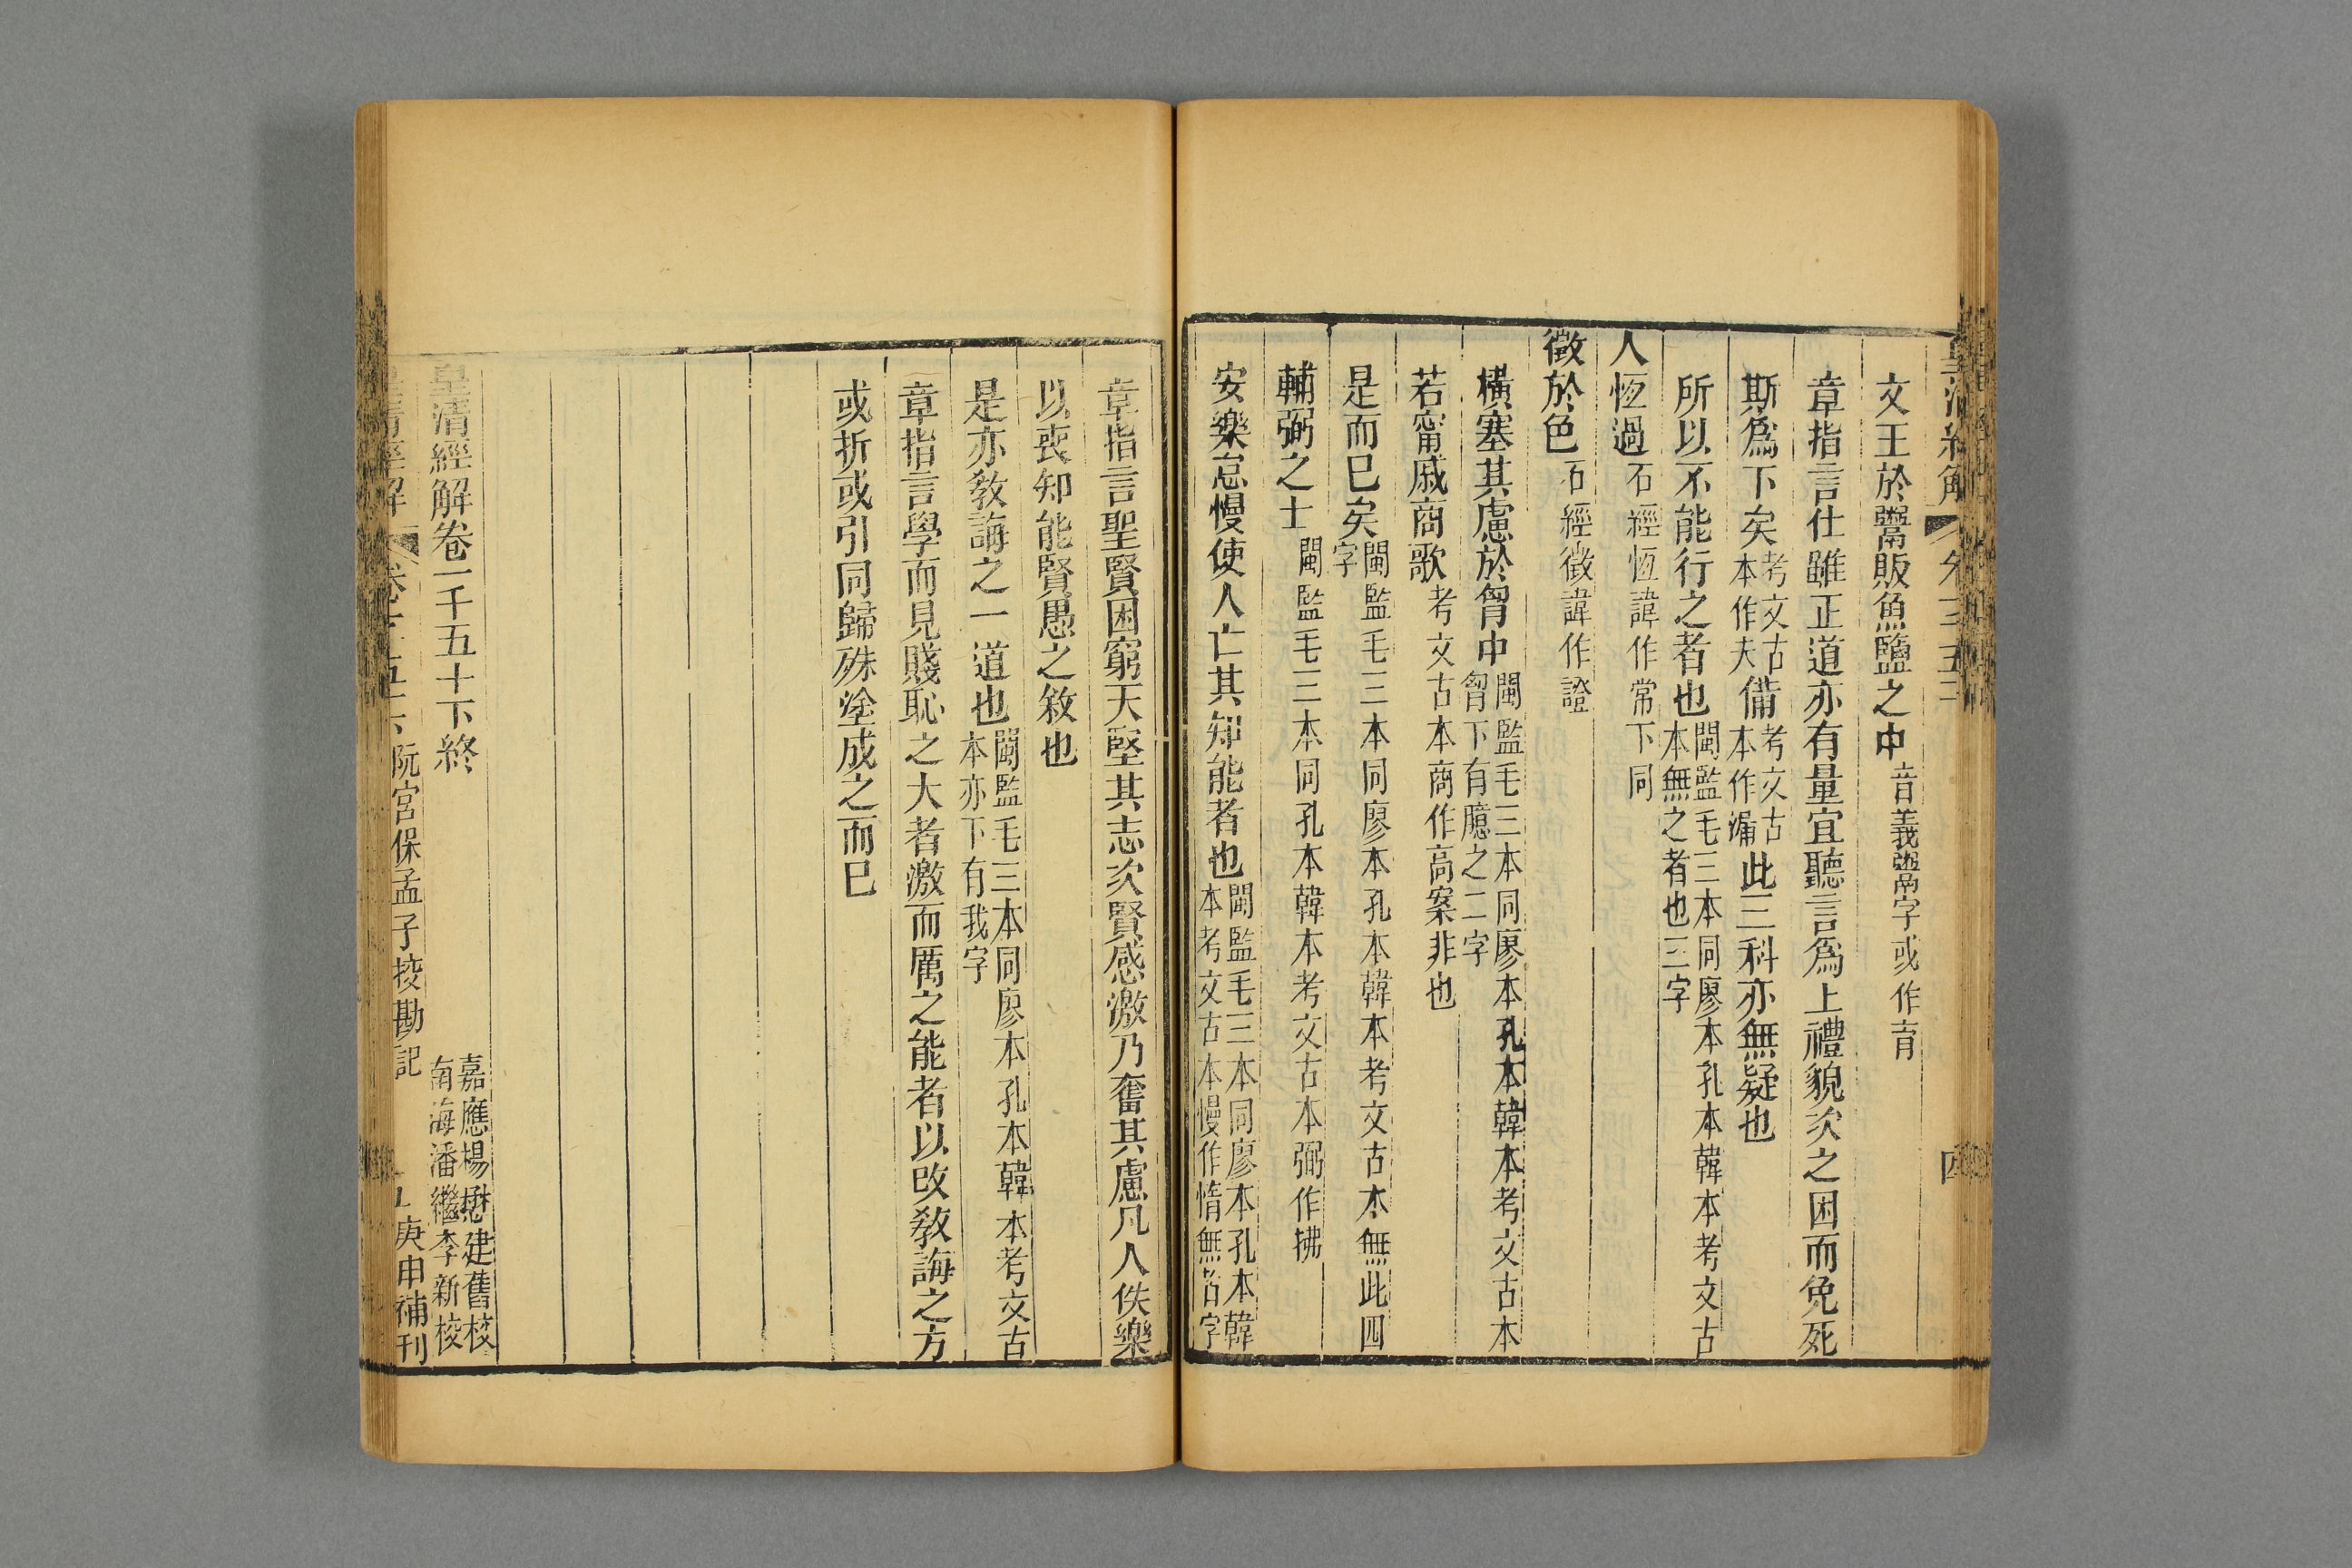 文王於鬻販魚鹽之中音義鬻字或作育
章指言仕雖正道亦有量宜聽言爲上禮貌次之困而免死
斯爲下矣考文古本作夫備考文古本作漏此三科亦無疑也
所以不能行之者也閩監毛三本同廖本孔本韓本考文古本無之者也三字
人恆過石經恆諱作常下同
徵於色石經徵諱作證
橫塞其慮於胷中閩監毛三本同廖本孔本韓本考文古本胷下有臆之二字
若甯戚商歌考文古本商作高案非也
是而已矣閩監毛三本同廖本孔本韓本考文古本無此四字
輔弼之士閩監毛三本同孔本韓本考文古本弼作拂
安樂怠慢使人亡其知能者也閩監毛三本同廖本孔本韓本考文古本慢作惰無者字
章指言聖賢困窮天堅其志次賢感激乃奮其慮凡人佚樂
以喪知能賢愚之敘也
是亦教誨之一道也閩監毛三本同廖本孔本韓本考文古本亦下有我字
章指言學而見賤恥之大者激而厲之能者以改教誨之方
或折或引同歸殊塗成之而已
皇清經解卷一千五十下終
嘉應楊懋建舊校
南海潘繼李新校
阮宮保孟子挍勘記
庚申補刊